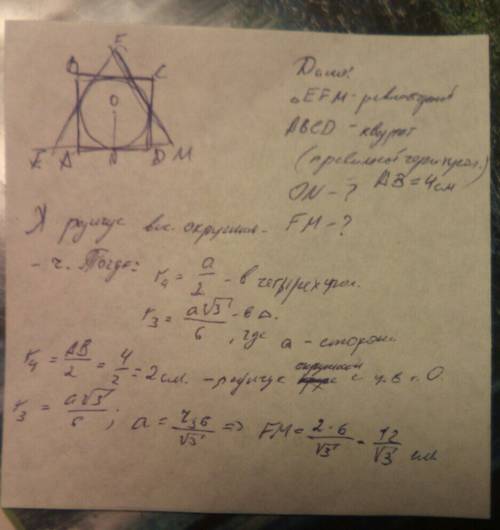 F
B C
O
E A N D M
Дано:
△EFM - равносторон
ABCD - квадрат
(правильный четырехугол.)
ON - ? AB = 4 см
FM - ?
радиус впс. окружнос-
- ч. Тогда: r₄ = a/2 - в четырехугол.
r₃ = a√3/6 - в △.
, где a - сторона
r₄ = AB/2 = 4/2 = 2 см. - радиус окружности с ц. в т. O.
r₃ = a√3/6 ; a = r₃6/√3 => FM = 2·6/√3 = 12/√3 см